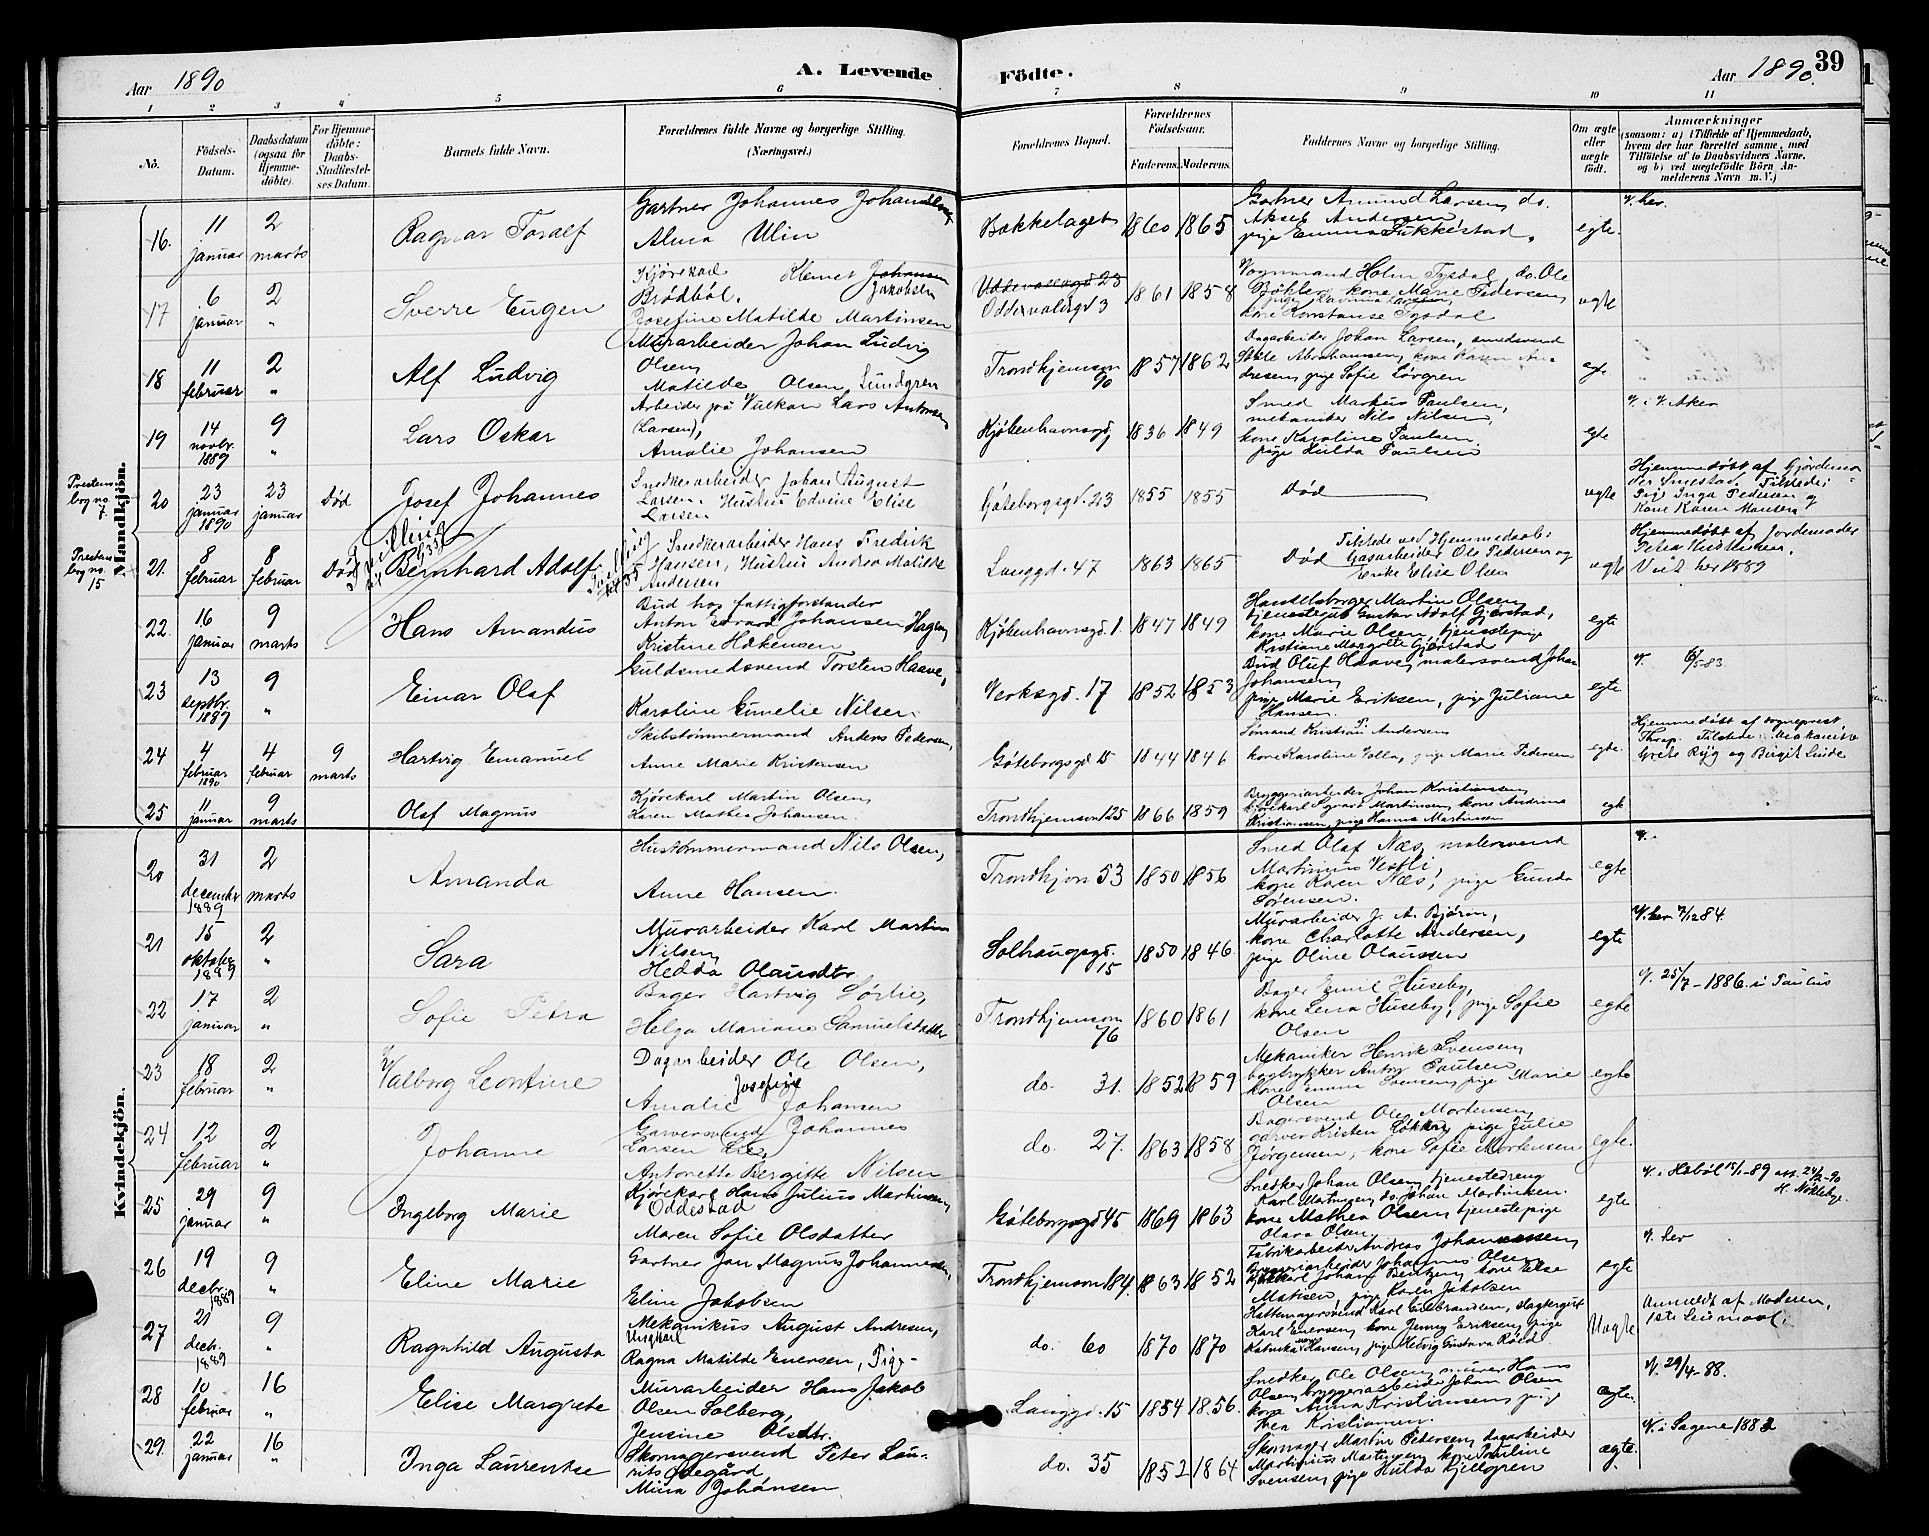 Aar 1890
A. Levende
Födte.
Aar 1890.
39
1 2 3 4 5 6 7 8 9 10 11
No.
Födsels-
Datum.
Daabsdatum
(ogsaa for
Hjemme-
döbte).
For Hjemme-
döbte:
Daabs-
Stadfæstel-
ses Datum.
Barnets fulde Navn.
Forældrenes fulde Navne og borgerlige Stilling.
(Næringsvei.)
Forældrenes Bopæl.
Forældrenes
Födselsaar.
Faderens. Moderens.
Faddernes Navne og borgerlige Stilling.
Om ægte
eller
uægte
födt.
Anmærkninger
(saasom: a) i Tilfælde af Hjemmedaab,
hvem der har forrettet samme, med
Tilföielse af to Daabsvidners Navne,
og b) ved uægtefödte Börn An-
melderens Navn m. V.)
Mandkjön.
16. 11 januar 2 marts
Ragnar Toralf
Gartner Johannes Johansen
Alma Ulin
Bækkelaget 1860 1865
Gartner Amund Larsen, do.
Aksel Andersen
pige Emma Tukkestad.
egte.
V. her.
17 6 januar 2 "
Sverre Eugen
Kjørekarl Klemet Johansen
Brødbøl. Jakobsen
Josefine Matilde Martinsen
Uddevallagd 23
Oddervaldsgd 3
1861 1858
Vognmand Holm Tysdal, do. Ole
Bøkler, kone Marie Pedersen,
kone Konstanse Tysdal
egte
18 11 februar 2 "
Alf Ludvig
Murarbeider Johan Ludvig
Olsen
Matilde Olsen Lundgren
Trondhjemsvn
90
1857 1862
Dagarbeider Johan Larsen, smedsvend
dresen, pige Sofie Lövgren
egt.
19 14 novbr. 1889 9 "
Lars Oskar
Arbeider på Vulkan Lars Antonsen
(Larsen),
Amalie Johansen
Kjöbenhavnsgd 1836 1849
Smed Markus Paulsen,
mekaniker Nils Nilsen,
kone Karoline Paulsen.
pige Hulda Paulsen
egte
V. i V. Aker
Prestens
bog no.
7.
20 23 januar 1890 23 januar Död
Josef Johannes
Snedkerarbeider Johan August
Larsen. Hustru Edvine Elise
Larsen
Göteborgsgd. 23 1855 1855
Död
egte
Hjemmedöbt af Gjordemo-
der Smestad. Tilstede:
Pige Inga Pedersen og
Kone Karen Monsen
Prestens
bog no.
15
21. 8 februar 8 februar Död
Bernhard Adolf
Snedkerarbeider Hans Fredrik
Hansen, Hustru Andrea Matilde
Andersen
Langgd. 47 1863 1865
Död
Tilstede ved Hjemmedaab:
Gasarbeider Ole Pedersen og
Enke Elise Olsen
egte
Hjemmedöbt af Jordemoder
Petra
Viet her 1889
22. 16 januar 9 marts
Hans Amandus
Bud hos fattigforstander
Anton Edvard Johansen Hagen
Kristine Håkensen
Kjöbenhavnsgd. 1. 1847 1849
Handelsborger Martin Olsen
tjenestegut Gustav Adolf Gjerstad,
kone Marie Olsen, tjenestepige
Kristiane Margrette Gjerstad
egte
23 13 septbr. 1889 9 "
Einar Olaf
Guldsmedsvend Torsten Haave,
Karoline Emelie Nilsen.
Verksgd. 17 1852 1853
Bud Oluf Haave, malersvend Johan
Johansen
pige Marie Eriksen, pige Juliane
Hansen.
egte
V. 6/5 83.
24 4 februar 1890 4 februar 9 marts
Hartvig Emanuel
Skibstömmermand Anders Pedersen,
Anne Marie Kristensen
Göteborgsgd 15 1844 1846
Sömand Kristian Andersen
kone Karoline Volla, pige Marie Pedersen
egte
Hjemmedöbt af sogneprest
Thrap. Tilstede: diakonisse
Grete Ryg og Birgit Linde
25 11 januar 9 marts
Olaf Magnus
Kjörekarl Martin Olsen,
Karen Mathea Johansen.
Trondhjemsvn 125 1866 1859
Bryggeriarbeider Johan Kristiansen,
kjörekarl Sigvart Martinsen, kone Andrine
Kristiansen, pige Hanna Martinsen
egte
Kvindekjön.
20 31 december 1889 2 marts
Amanda
Hustömmermand Nils Olsen,
Anne Hansen.
Trondhjem 53 1850 1856
Smed Olaf Næs, malersvend
Martinius Vestli,
kone Karen Næs, pige Gunda
Sörensen.
egte
V.
21 15 oktober 1889 2 "
Sara
Murarbeider Karl Martin
Nilsen
Hedda Olausdtr.
Solhaugsgd.
15
1850 1846
Murarbeider J. A. Björn,
kone Charlotte Andersen,
pige Oline Olaussen
egte
V. her 7/12 84.
22 17 januar 2 "
Sofie Petra
Bager Hartvig Sörlie,
Helga Mariane Samuelsdatter
Trondhjemsvn
76
1860 1861
Bager Emil Huseby,
kone Lena Huseby, pige Sofie
Olsen
egte
V. 25/7-1886. i Paulus
23 18 februar 2 "
Valborg Leontine
Dagarbeider Ole Olsen,
Josefine
Amalie Johansen
do. 31. 1852 1859
Mekaniker Henrik Svensen,
bogtrykker Anton Paulsen
kone Emma Svensen, pige Marie
Olsen
egte
24 12 februar 2 "
Johanne
Garversvend Johannes
Larsen Lie,
Antonette Bergitte Nilsen
do. 27. 1863 1858
Bagersvend Ole Mortensen
garver Kristen Lökken, pige Julie
Jörgensen, kone Sofie Mortensen
egte.
25 29 januar 9 "
Ingeborg Marie
Kjörekarl Hans Julius Martinsen,
Oddestad
Maren Sofie Olsdatter
Göteborgsgd 45 1869 1863
Snedker Johan Olsen, tjenestedreng
Karl Martinsen, do. Johan Martinsen.
kone Mathea Olsen, tjenestepige
Olava Olsen
egte
V. i Hobøl 15/1-89 att. 24/2-90
H. Nöklebye.
26 19 decbr. 1889 9 "
Eline Marie
Gartner Jan Magnus Johannesen,
Eline Jakobsen
Trondhjemsvn 184. 1863 1852
Fabrikarbeider Andreas Johannessen,
Bryggeriarbeider Johannes Olsen
kjörekarl Johan Bentzen, kone Else
Matisen, pige Karen Jakobsen
egte
V. her
27 21 decb. 1889 9 "
Ragnhild Augusta
Mekanikus August Andresen,
Ungkarl
Ragna Matilde Evensen, Pige-
do. 60 1870 1870
Hattemagersvend Karl Gulbrandsen, slagtergut
Karl Evensen, kone Jenny Eriksen, pige
Hansen, pige Helvig Gustava Röed.
Uægte
Anmeldt af Moderen,
1ste Leiermaal.
28 10 februar 16 "
Elise Margrete
Murarbeider Hans Jakob
Olsen Solberg,
Jensine Olsdtr.
Langgd. 15 1854 1856.
Snedker Ole Olsen, murer Hans
Olsen, bryggeriarbeider Johan Olsen
kone Anna Kristiansen, pige
Thea Kristiansen.
ægte.
V. 29/4-88.
29. 22 januar 16 "
Inga Laurentse
Skomagersvend Peter Lau-
rits Ödegård,
Mina Johansen
do. 35 1852 1864
Skomager Martin Pedersen, dagarbeider
Martinius Martinsen, kone Pauline
Svensen, pige Hulda Kjellgren
ægte.
V. i Sagene 1882